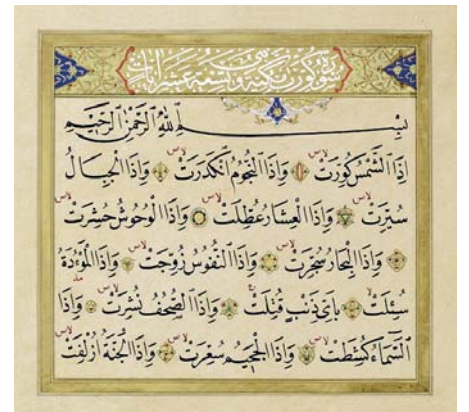 سورة كورت مكية وتسعة عشر آيات
بِسْمِ اللهِ الرَّحْمٰنِ الرَّحِيْمِ
اِذَا الشَّمْسُ كُوِّرَتْ لاص وَاِذَا النُّجُومُ انْكَدَرَتْ لاص وَاِذَا الْجِبَالُ
سُيِّرَتْ لاص وَاِذَا الْعِشَارُ عُطِّلَتْ لاص وَاِذَا الْوُحُوشُ حُشِرَتْ لاص
وَاِذَا الْبِحَارُ سُجِّرَتْ لاص وَاِذَا النُّفُوسُ زُوِّجَتْ لاص وَاِذَا الْمَوْءُدَةُ
سُئِلَتْ لا بِاَيِّ ذَنْبٍ قُتِلَتْ ج وَاِذَا الصُّحُفُ نُشِرَتْ لاص وَاِذَا
السَّمَاءُ كُشِطَتْ لاص وَاِذَا الْجَحِيمُ سُعِّرَتْ لاص وَاِذَا الْجَنَّةُ اُزْلِفَتْ لاص